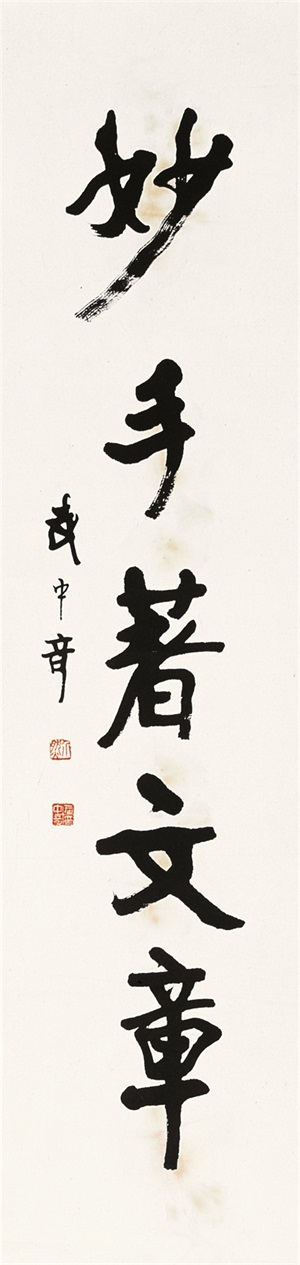 妙手著文章
武中奇